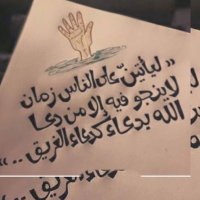 « ليأتين على الناس زمان
لا ينجو فيه إلا من دعا
الله بدعاء كدعاء الغريق .. »